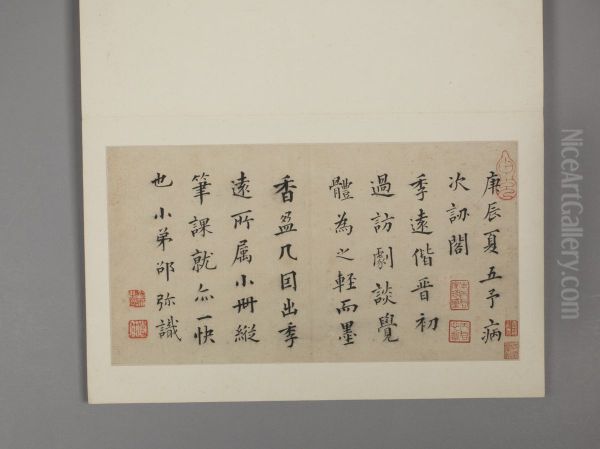 庚辰夏五予病
次詠閣
季遠偕晉初
過訪劇談覺
體為之輕而墨
香盈几因出季
遠所属小冊縱
筆課就亦一快
也小弟邵弥識
NiceArtGallery.com